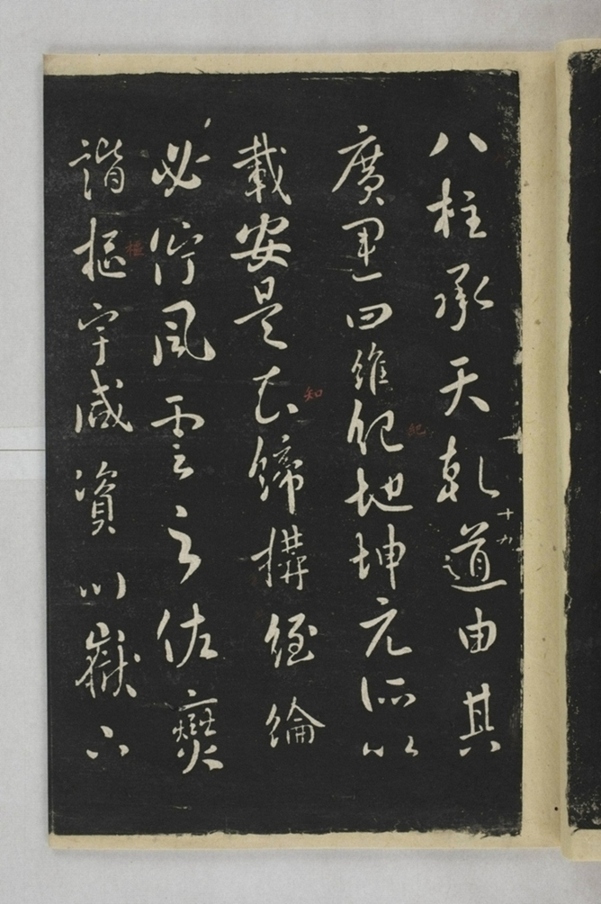 八柱承天乾道由其
十九
廣運四維紀地坤元所以
紀
載安是知締構經綸
知
必佇風雲之佐燮
諧樞宰咸資川嶽
樞